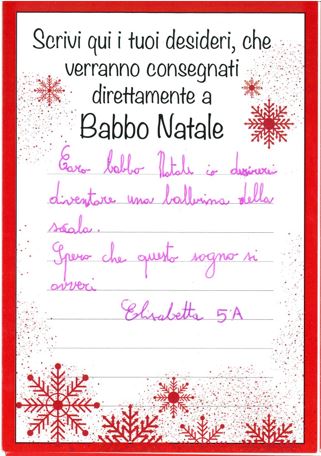 Scrivi qui i tuoi desideri, che
verranno consegnati
direttamente a
Babbo Natale
Caro babbo Natale io desidererei
diventare una ballerina della
scala.
Spero che questo sogno si
avveri
Elisabetta 5ªA